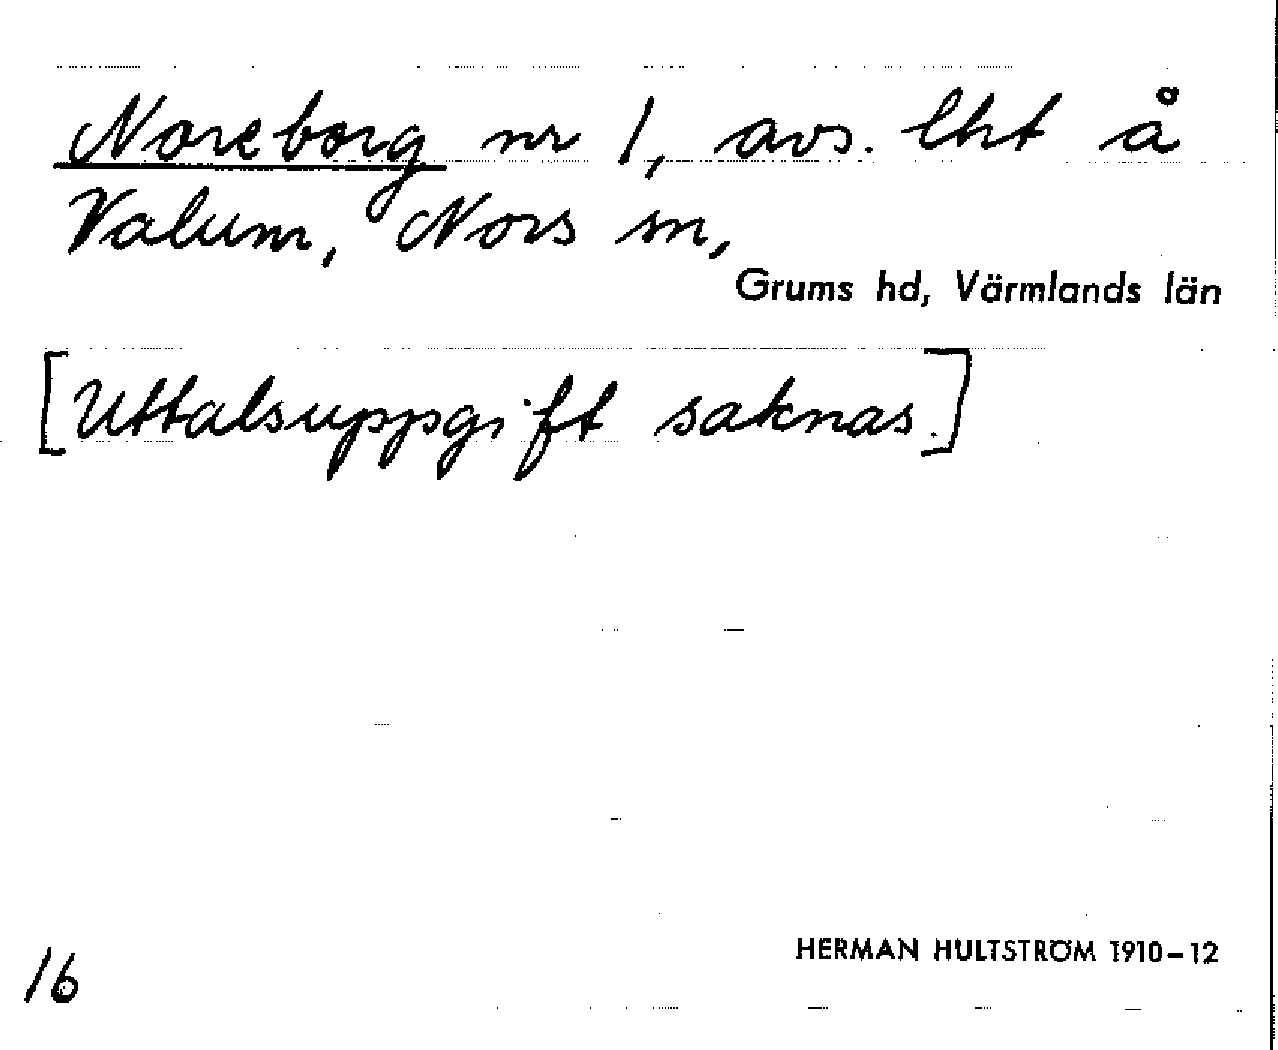 Noreborg nr 1, avs. lht å
Valum, Nors sn,
Grums hd, Värmlands län
[Uttalsuppgift saknas.]
HERMAN HULTSTRÖM 1910-12
16